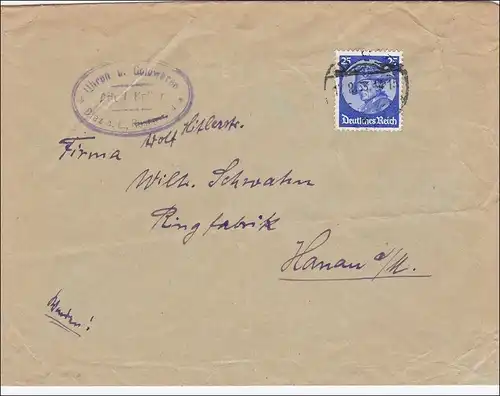 Uhren u. Goldwaren
Adolf Hitlerstr.
25 25
Deutsches Reich
Firma
Wilh. Schwahn
Ringfabrik
Hanau a/M.